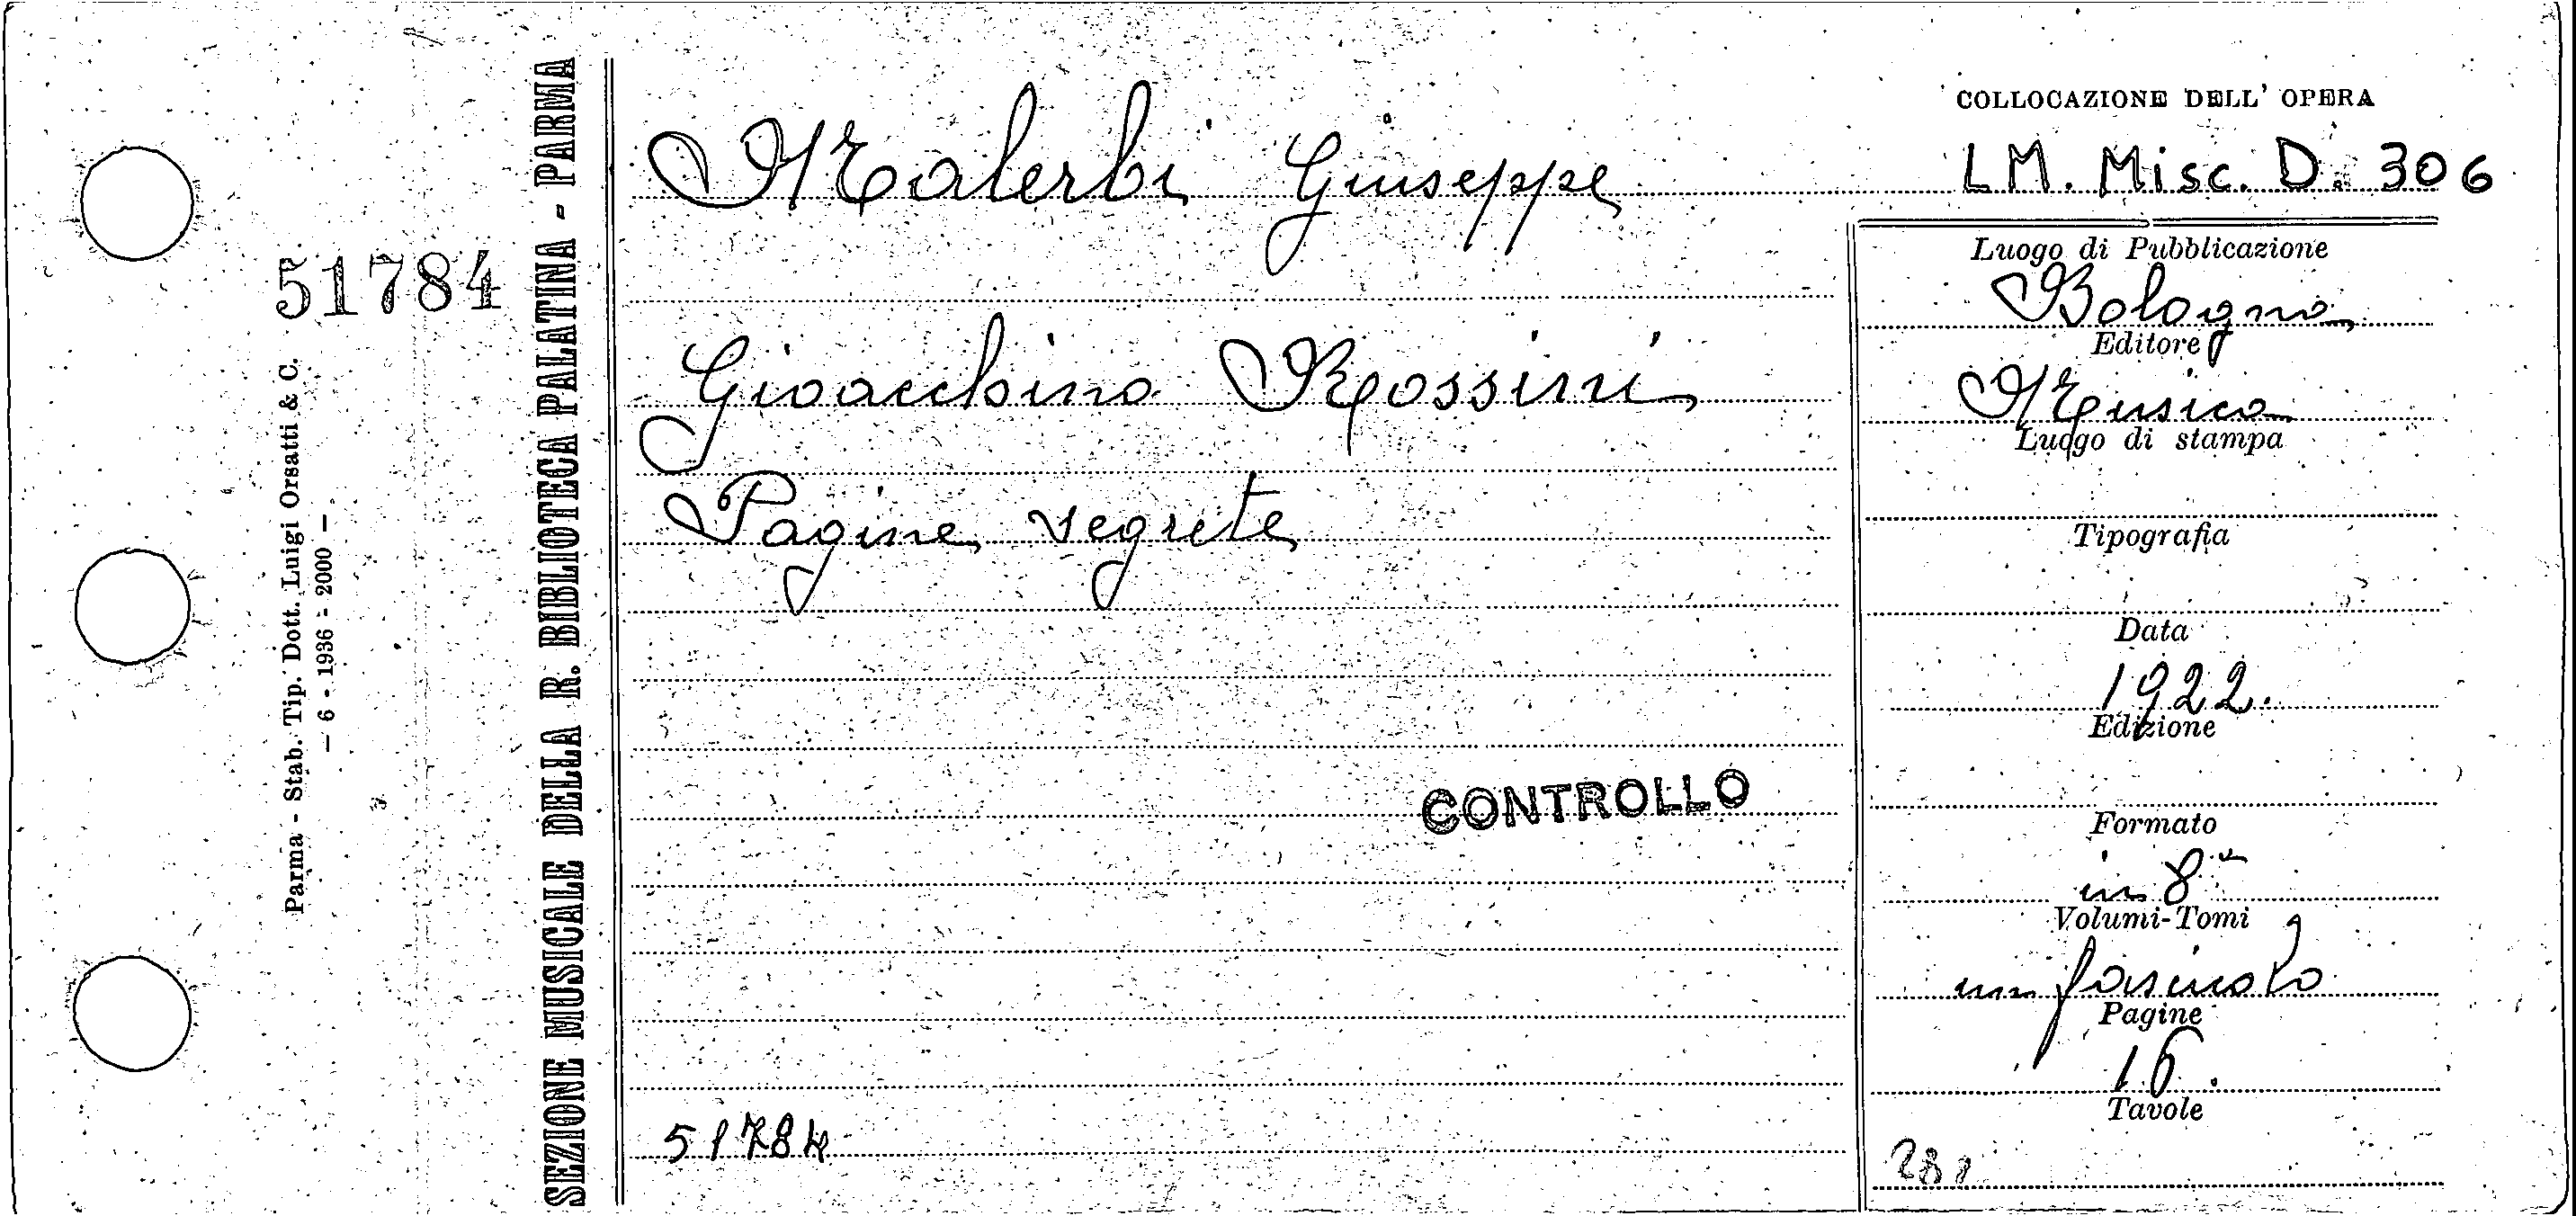 51784
Parma - Stab. Tip. Dott. Luigi Orsatti & C.
— 6 - 1936 - 2000 —
SEZIONE MUSICALE DELLA R. BIBLIOTECA PALATINA - PARMA
Malerbi Giuseppe
Gioacchino Rossini
Pagine segrete
CONTROLLO
51784
COLLOCAZIONE DELL' OPERA
LM. Misc. D. 306
Luogo di Pubblicazione
Bologna
Editore
Musica
Luogo di stampa
Tipografia
Data
1922.
Edizione
Formato
in 8°
Volumi-Tomi
un fascicolo
Pagine
16.
Tavole